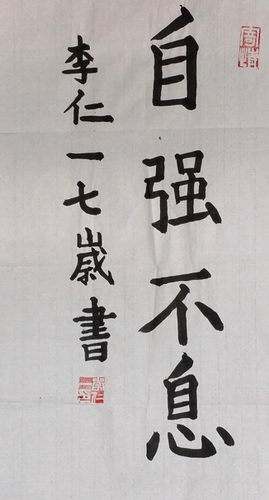 自强不息
李仁一七歲書